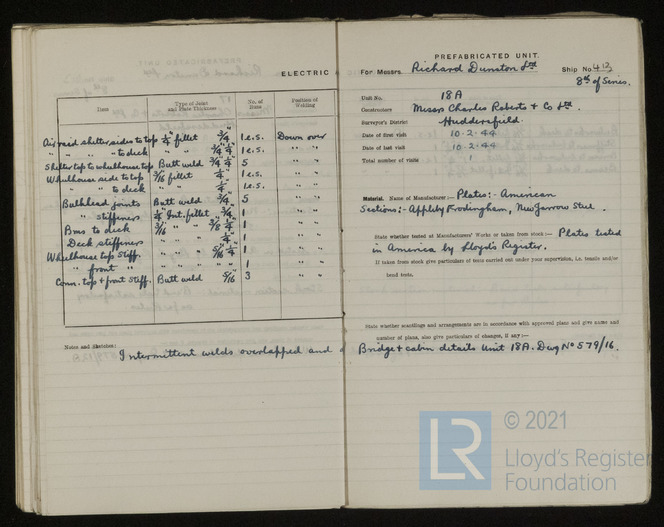 ELECTRIC
Item
Type of Joint
and Plate Thickness
No. of
Runs
Position of
Welding
Air raid shelter sides to top 1/4" fillet 3/4" 1/4" 1 e.s. Down over
" " " " to deck " " 3/4" 1/4" 1 e.s. " "
Shelter top to wheelhouse top Butt weld 3/4" 1/4" 5 " "
Wheelhouse side to top 3/16" fillet 1/4" 1 e.s. " "
" " to deck " " 1/4" 1 e.s. " "
Bulkhead joints Butt weld 3/4" 5 " "
" stiffeners 1/4" Int. fillet 3/4" 1 " "
Bms to deck 3/16" " " 3/8" 1/4" 1 " "
Deck stiffeners " " " 1/4" 1 " "
Wheelhouse top stiff. " " " 5/16" 1/4" 1 " "
" front " " " " 1 " "
Conn. top + front stiff. Butt weld 5/16" 3 " "
Notes and Sketches:
Intermittent welds overlapped and
PREFABRICATED UNIT.
For Messrs. Richard Dunston Ltd Ship No. 413
8th of Series.
Unit No. 18A
Constructors Messrs Charles Roberts & Co Ltd.
Surveyor's District Huddersfield.
Date of first visit 10.2.44
Date of last visit 10.2.44
Total number of visits 1
Material. Name of Manufacturer:— Plates:- American
Sections:- Appleby Frodingham, New Jarrow Steel.
State whether tested at Manufacturers' Works or taken from stock:— Plates tested
in America by Lloyd's Register.
If taken from stock give particulars of tests carried out under your supervision, i.e. tensile and/or
bend tests.
State whether scantlings and arrangements are in accordance with approved plans and give name and
number of plans, also give particulars of changes, if any:—
Bridge & cabin details Unit 18A. Dwg No 579/16.
LR
© 2021
Lloyd's Register
Foundation